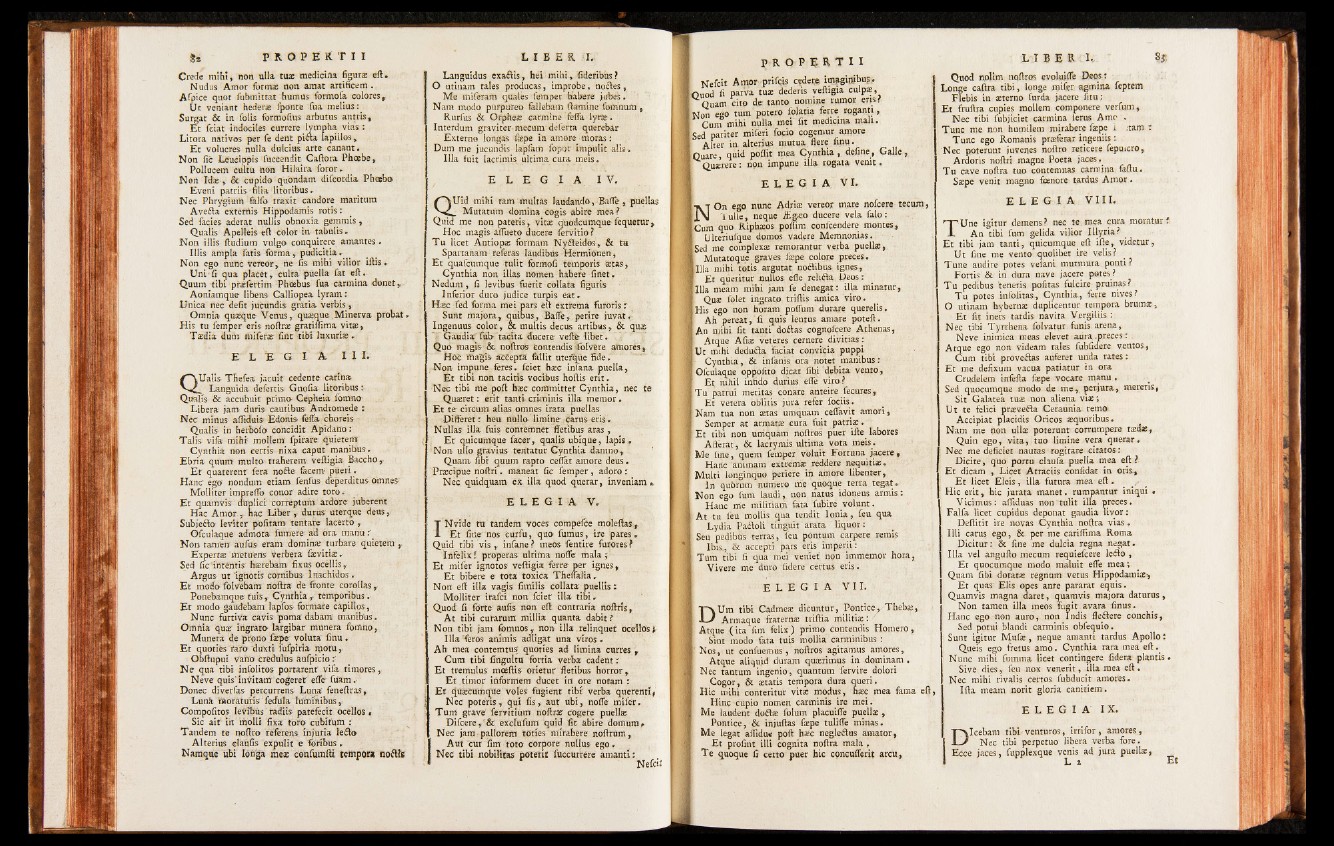 82 PROPERTII
Crede mihi, non ulla tuæ medicina figuræ eſt.
Nudus Amor formæ non amat artificem.
Aſpice quot ſubmittat humus formoſa colores,
Ut veniant hederæ ſponte ſua melius:
Surgat & in ſolis formoſius arbutus antris,
Et ſciat indociles currere lympha vias:
Litora nativos per ſe dent picta lapillos,
Et volucres nulla dulcius arte canant.
Non ſic Leucippis ſuccendit Caſtora Phœbe,
Pollucem cultu non Hilaira ſoror.
Non Idæ, & cupido quondam diſcordia Phœbo
Eveni patriis filia litoribus.
Nec Phrygium falſo traxit candore maritum
Avecta externis Hippodamis rotis:
Sed facies aderat nullis obnoxia gemmis,
Qualis Apelleis eſt color in tabulis.
Non illis ſtudium vulgo conquirere amantes.
Illis ampla ſatis forma, pudicitia.
Non ego nunc vereor, ne ſis mihi vilior iſtis.
Uni ſi qua placet, culta puella ſat eſt.
Quum tibi præſertim Phœbus ſua carmina donet,
Aoniamque libens Calliopea lyram:
Unica nec deſit jucundis gratia verbis,
Omnia quæque Venus, quæque Minerva probat.
His tu ſemper eris noſtræ gratiſſima vitæ,
Tædia dum miſeræ ſint tibi luxuriæ.
ELEGIA III.
QUalis Theſea jacuit cedente carina
Languida deſertis Gnoſia litoribus:
Qualis & accubuit primo Cepheia ſomno
Libera jam duris cautibus Andromede:
Nec minus aſſiduis Edonis feſſa choreis
Qualis in herboſo concidit Apidano:
Talis viſa mihi mollem ſpirare quietem
Cynthia non certis nixa caput manibus.
Ebria quum multo traherem veſtigia Baccho,
Et quaterent ſera nocte facem pueri.
Hanc ego nondum etiam ſenſus deperditus omnes
Molliter impreſſo conor adire toro.
Et quamvis duplici correptum ardore juberent
Hac Amor, hac Liber, durus uterque deus,
Subjecto leviter poſitam tentare lacerto,
Oſculaque admota ſumere ad ora manu:
Non tamen auſus eram dominæ turbare quietem,
Expertæ metuens verbera ſævitiæ.
Sed ſic intentis hærebam fixus ocellis,
Argus ut ignotis cornibus Inachidos.
Et modo ſolvebam noſtra de fronte corollas,
Ponebamque tuis, Cynthia, temporibus.
Et modo gaudebam lapſos formare capillos,
Nunc furtiva cavis poma dabam manibus.
Omnia quæ ingrato largibar munera ſomno,
Munera de prono ſæpe voluta ſinu.
Et quoties raro duxti ſuſpiria motu,
Obſtupui vano credulus auſpicio:
Ne qua tibi inſolitos portarent viſa timores,
Neve quis invitam cogeret eſſe ſuam.
Donec diverſas percurrens Luna feneſtras,
Luna moraturis ſedula luminibus,
Compoſitos levibus radiis patefecit ocellos,
Sic ait in molli fixa toro cubitum:
Tandem te noſtro referens injuria lecto
Alterius clauſis expulit e foribus.
Namque ubi longa meæ conſumſti tempora noctis
LIBER I.
Languidus exactis, hei mihi, ſideribus?
O utinam tales producas, improbe, noctes,
Me miſeram quales ſemper habere jubes.
Nam modo purpureo fallebam ſtamine ſomnum,
Rurſus & Orpheæ carmine feſſa lyræ.
Interdum graviter mecum deſerta querebar
Externo longas ſæpe in amore moras:
Dum me jucundis lapſam ſopor impulit alis.
Illa fuit lacrimis ultima cura meis.
ELEGIA IV.
QUid mihi tam multas laudando, Baſſe, puellas
Mutatum domina cogis abire mea?
Quid me non pateris, vitæ quodcumque ſequetur,
Hoc magis aſſueto ducere ſervitio?
Tu licet Antiopæ formam Nycteidos, & tu
Spartanam referas laudibus Hermionen,
Et quaſcumque tulit formoſi temporis ætas,
Cynthia non illas nomen habere ſinet.
Nedum, ſi levibus fuerit collata figuris
Inferior duro judice turpis eat.
Hæc ſed forma mei pars eſt extrema furoris:
Sunt majora, quibus, Baſſe, perire juvat.
Ingenuus color, & multis decus artibus, & quæ
Gaudia ſub tacita ducere veſte libet.
Quo magis & noſtros contendis ſolvere amores,
Hoc magis accepta fallit uterque fide.
Non impune feres. ſciet hæc inſana puella,
Et tibi non tacitis vocibus hoſtis erit.
Nec tibi me poſt hæc committet Cynthia, nec te
Quæret: erit tanti criminis illa memor.
Et te circum alias omnes irata puellas
Differet: heu nullo limine carus eris.
Nullas illa ſuis contemnet fletibus aras,
Et quicumque ſacer, qualis ubique, lapis.
Non ullo gravius tentatur Cynthia damno,
Quam ſibi quum rapto ceſſat amore deus.
Præcipue noſtri. maneat ſic ſemper, adoro:
Nec quidquam ex illa quod querar, inveniam.
ELEGIA V.
INvide tu tandem voces compeſce moleſtas,
Et ſine nos curſu, quo ſumus, ire pares.
Quid tibi vis, inſane? meos ſentire furores?
Infelix! properas ultima noſſe mala;
Et miſer ignotos veſtigia ferre per ignes,
Et bibere e tota toxica Theſſalia.
Non eſt illa vagis ſimilis collata puellis:
Molliter iraſci non ſciet illa tibi.
Quod ſi forte auſis non eſt contraria noſtris,
At tibi curarum millia quanta dabit?
Non tibi jam ſomnos, non illa relinquet ocellos;
Illa feros animis adligat una viros.
Ah mea contemtus quoties ad limina curres,
Cum tibi ſingultu fortia verba cadent:
Et tremulus mœſtis orietur fletibus horror,
Et timor informem ducet in ore notam:
Et quæcumque voles fugient tibi verba querenti,
Nec poteris, qui ſis, aut ubi, noſſe miſer.
Tum grave ſervitium noſtræ cogere puellæ
Diſcere, & excluſum quid ſit abire domum.
Nec jam pallorem toties mirabere noſtrum,
Aut cur ſim toto corpore nullus ego.
Nec tibi nobilitas poterit ſuccurrere amanti:
Neſcit
PROPERTII
Neſcit Amor priſcis cedere imaginibus.
Quod ſi parva tuæ dederis veſtigia culpæ,
Quam cito de tanto nomine rumor eris?
Non ego tum potero ſolatia ferre roganti,
Cum mihi nulla mei ſit medicina mali.
Sed pariter miſeri ſocio cogemur amore
Alter in alterius mutua flere ſinu.
Quare, quid poſſit mea Cynthia, deſine, Galle,
Quærere: non impune illa rogata venit.
ELEGIA VI.
NOn ego nunc Adriæ vereor mare noſcere tecum,
Tulle, neque Ægæo ducere vela ſalo:
Cum quo Riphæos poſſim conſcendere montes,
Ulteriuſque domos vadere Memnonias.
Sed me complexæ remorantur verba puellæ,
Mutatoque graves ſæpe colore preces.
Illa mihi totis argutat noctibus ignes,
Et queritur nullos eſſe relicta Deos:
Illa meam mihi jam ſe denegat: illa minatur,
Quæ ſolet ingrato triſtis amica viro.
His ego non horam poſſum durare querelis.
Ah pereat, ſi quis lentus amare poteſt.
An mihi ſit tanti doctas cognoſcere Athenas,
Atque Aſiæ veteres cernere divitias:
Ut mihi deducta faciat convicia puppi
Cynthia, & inſanis ora notet manibus:
Oſculaque oppoſito dicat ſibi debita vento,
Et nihil infido durius eſſe viro?
Tu patrui meritas conare anteire ſecures,
Et vetera oblitis jura refer ſociis.
Nam tua non ætas umquam ceſſavit amori,
Semper at armatæ cura fuit patriæ.
Et tibi non umquam noſtros puer iſte labores
Afferat, & lacrymis ultima vota meis.
Me ſine, quem ſemper voluit Fortuna jacere,
Hanc animam extremæ reddere nequitiæ.
Multi longinquo periere in amore libenter,
In quorum numero me quoque terra tegat.
Non ego ſum laudi, non natus idoneus armis:
Hanc me militiam fata ſubire volunt.
At tu ſeu mollis qua tendit Ionia, ſeu qua
Lydia Pactoli tinguit arata liquor:
Seu pedibus terras, ſeu pontum carpere remis
Ibis, & accepti pars eris imperii:
Tum tibi ſi qua mei veniet non immemor hora,
Vivere me duro ſidere certus eris.
ELEGIA VII.
DUm tibi Cadmeæ dicuntur, Pontice, Thebæ,
Armaque fraternæ triſtia militiæ:
Atque (ita ſim felix) primo contendis Homero,
Sint modo fata tuis mollia carminibus:
Nos, ut conſuemus, noſtros agitamus amores,
Atque aliquid duram quærimus in dominam.
Nec tantum ingenio, quantum ſervire dolori
Cogor, & ætatis tempora dura queri.
Hic mihi conteritur vitæ modus, hæc mea fama eſt,
Hinc cupio nomen carminis ire mei.
Me laudent doctæ ſolum placuiſſe puellæ,
Pontice, & injuſtas ſæpe tuliſſe minas.
Me legat aſſidue poſt hæc neglectus amator,
Et proſint illi cognita noſtra mala.
Te quoque ſi certo puer hic concuſſerit arcu,
LIBER I. 83
Quod nolim noſtros evoluiſſe Deos:
Longe caſtra tibi, longe miſer agmina ſeptem
Flebis in æterno ſurda jacere ſitu:
Et fruſtra cupies mollem componere verſum,
Nec tibi ſubjiciet carmina ſerus Amor.
Tunc me non humilem mirabere ſæpe
Tunc ego Romanis præferar ingeniis:
Nec poterunt juvenes noſtro reticere ſepulcro,
Ardoris noſtri magne Poeta jaces.
Tu cave noſtra tuo contemnas carmina faſtu.
Sæpe venit magno fœnore tardus Amor.
ELEGIA VIII.
TUne igitur demens? nec te mea cura moratur?
An tibi ſum gelida vilior Illyria?
Et tibi jam tanti, quicumque eſt iſte, videtur,
Ut ſine me vento quolibet ire velis?
Tune audire potes veſani murmura ponti?
Fortis & in dura nave jacere potes?
Tu pedibus teneris poſitas fulcire pruinas?
Tu potes inſolitas, Cynthia, ferre nives?
O utinam hybernæ duplicentur tempora brumæ,
Et ſit iners tardis navita Vergiliis:
Nec tibi Tyrrhena ſolvatur funis arena,
Neve inimica meas elevet aura preces:
Atque ego non videam tales ſubſidere ventos,
Cum tibi provectas auferet unda rates:
Et me defixum vacua patiatur in ora
Crudelem infeſta ſæpe vocare manu.
Sed quocumque modo de me, perjura, mereris,
Sit Galatea tuæ non aliena viæ;
Ut te felici prævecta Ceraunia remo
Accipiat placidis Oricos æquoribus.
Nam me non ullæ poterunt corrumpere tædæ,
Quin ego, vita, tuo limine vera querar.
Nec me deficiet nautas rogitare citatos:
Dicite, quo portu clauſa puella mea eſt?
Et dicam, Licet Atraciis conſidat in oris,
Et licet Eleis, illa futura mea eſt.
Hic erit, hic jurata manet. rumpantur iniqui.
Vicimus: aſſiduas non tulit illa preces.
Falſa licet cupidus deponat gaudia livor:
Deſtitit ire novas Cynthia noſtra vias.
Illi carus ego, & per me cariſſima Roma
Dicitur: & ſine me dulcia regna negat.
Illa vel anguſto mecum requieſcere lecto,
Et quocumque modo maluit eſſe mea;
Quam ſibi dotatæ regnum vetus Hippodamiæ,
Et quas Elis opes ante pararat equis.
Quamvis magna daret, quamvis majora daturus,
Non tamen illa meos fugit avara ſinus.
Hanc ego non auro, non Indis flectere conchis,
Sed potui blandi carminis obſequio.
Sunt igitur Muſæ, neque amanti tardus Apollo:
Queis ego fretus amo. Cynthia rara mea eſt.
Nunc mihi ſumma licet contingere ſidera plantis.
Sive dies, ſeu nox venerit, illa mea eſt.
Nec mihi rivalis certos ſubducit amores.
Iſta meam norit gloria canitiem.
ELEGIA IX.
DIcebam tibi venturos, irriſor, amores,
Nec tibi perpetuo libera verba fore.
Ecce jaces, ſupplexque venis ad jura puellæ,
L 2 Et